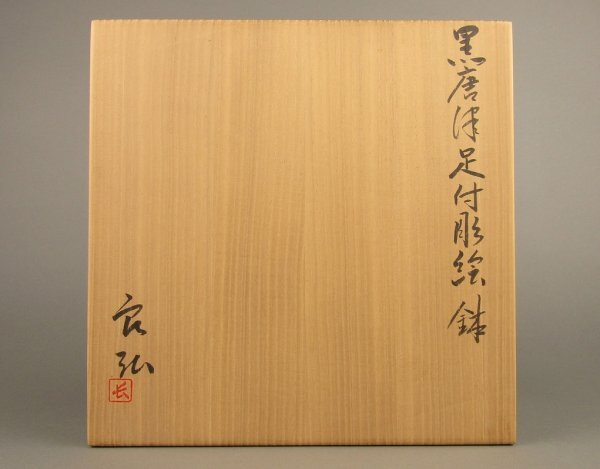 黒唐津足付彫絵鉢
良弘
长